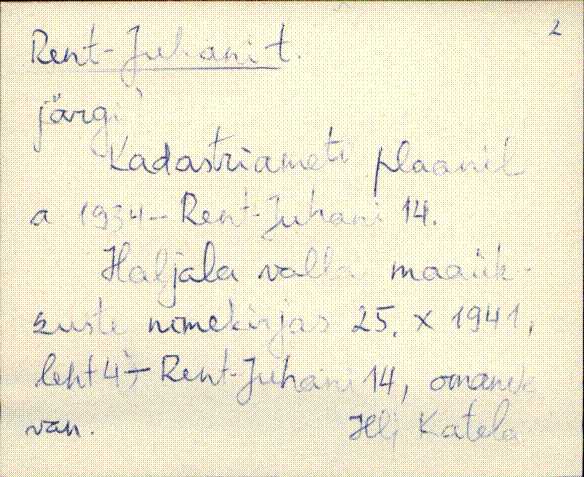 2
Rent-Juhani t.
järgi
Kadastriameti plaanil
a 1934 - Rent-Juhani 14.
Haljala valla maaük-
suste nimekirjas 25. X 1941,
leht 4, - Rent-Juhani 14, omanik
van. Hlj Katela